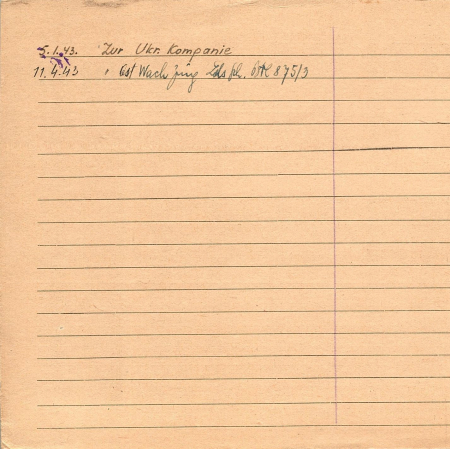 5.1.43. Zur Ukr. Kompanie
11.4.43 " Ost Wach Zug Lds sch. Btl 875/3